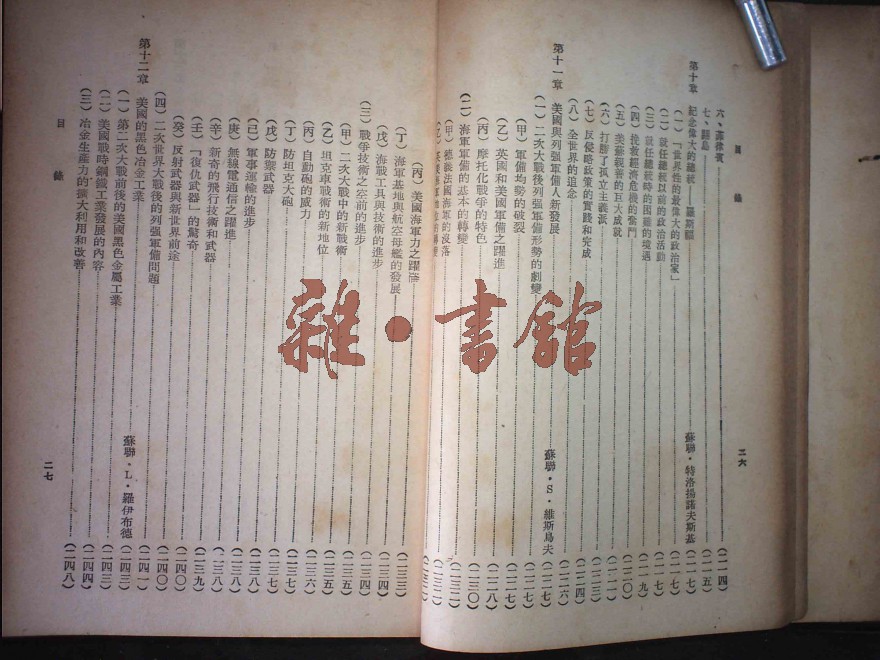 目錄
二六
六、菲律賓……(一一四)
七、關島……(一一五)
第十章 紀念偉大的總統——羅斯福……蘇聯·特洛揚諾夫斯基(一一七)
(一)「世界性的最偉大的政治家」……(一一七)
(二)就任總統以前的政治活動……(一一七)
(三)就任總統時的困難的境遇……(一一九)
(四)挽救經濟危機的奮鬥……(一二〇)
(五)美蘇親善的巨大成就……(一二一)
(六)打擊了孤立主義派……(一二三)
(七)反侵略政策的實踐和完成……(一二四)
(八)全世界的追念……(一二六)
第十一章 美國與列强軍備人新發展……蘇聯·S·維斯烏夫(一二七)
(一)二次大戰後列强軍備形勢的劇變……(一二七)
(甲)軍備均勢的破裂……(一二七)
(乙)英國和美國軍備之躍進……(一二八)
(丙)摩托化戰爭的特色……(一三〇)
(二)海軍軍備的基本的轉變……(一三二)
(甲)德義法國海軍的沒落……(一三二)
(乙)……(一三二)
(丙)美國海軍力之躍進……(一三三)
(丁)海軍基地與航空母艦的發展……(一三三)
(戊)海戰工具與技術的進步……(一三四)
(三)戰爭技術之空前的進步……(一三四)
(甲)二次大戰中的新戰術……(一三五)
(乙)坦克車戰術的新地位……(一三五)
(丙)自動砲的威力……(一三六)
(丁)防坦克大砲……(一三七)
(戊)防禦武器……(一三七)
(己)軍事運輸的進步……(一三八)
(庚)無線電通信之躍進……(一三八)
(辛)新奇的飛行技術和武器……(一三八)
(壬)「復仇武器」的驚奇……(一三九)
(癸)反射武器與新世界前途……(一四〇)
(四)二次世界大戰後的列强軍備問題……(一四〇)
第十二章 美國的黑色冶金工業……蘇聯·L·羅伊布德(一四一)
(一)第二次大戰前後的美國黑色金屬工業……(一四三)
(二)美國戰時鋼鐵工業發展的內容……(一四四)
(三)冶金生產力的擴大利用和改善……(一四八)
目錄
二七
雜·書館